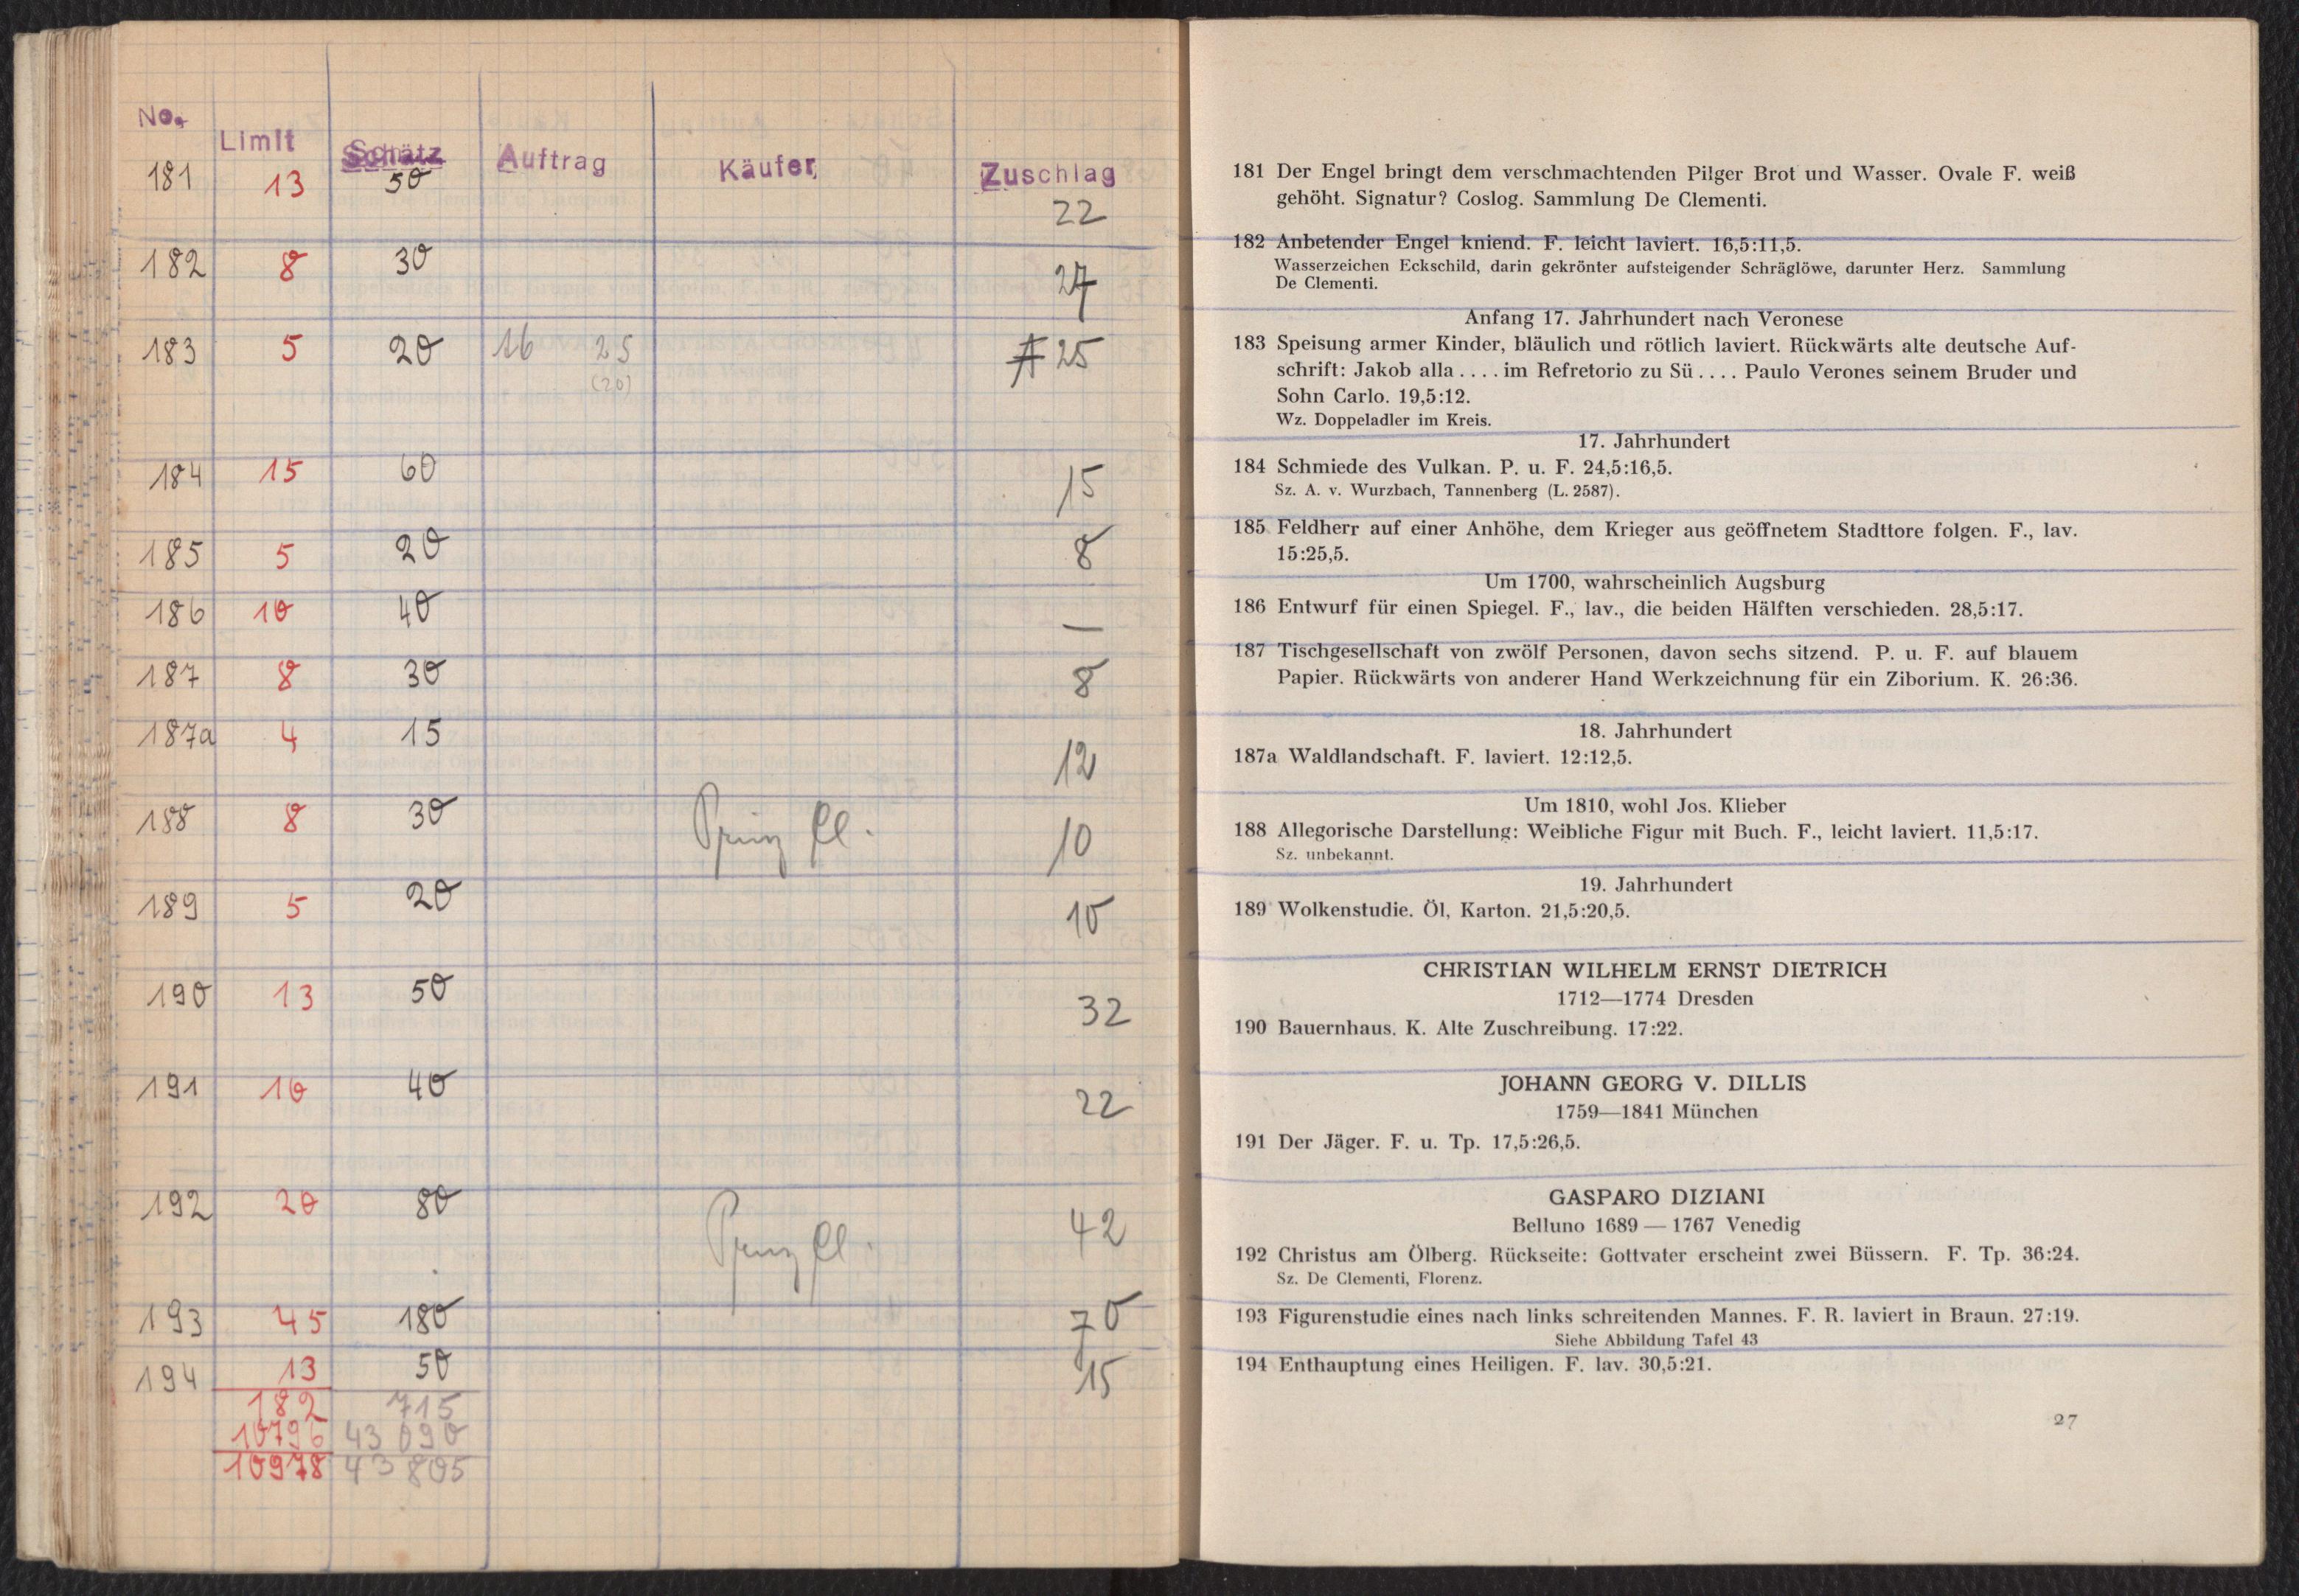 No. Limit Schätz Auftrag Käufer Zuschlag
181 13 50 22
182 8 30 27
183 5 20 16 25 25
(20)
184 15 60 15
185 5 20 8
186 10 40 —
187 8 30 8
187a 4 15 12
188 8 30 Prinz 10
189 5 20 10
190 13 50 32
191 10 40 22
192 20 80 Prinz 42
193 45 180 70
194 13 50 15
182 715
10796 43 090
10978 43 805
181 Der Engel bringt dem verschmachtenden Pilger Brot und Wasser. Ovale F. weiß
gehöht. Signatur? Coslog. Sammlung De Clementi.
182 Anbetender Engel kniend. F. leicht laviert. 16,5:11,5.
Wasserzeichen Eckschild, darin gekrönter aufsteigender Schräglöwe, darunter Herz. Sammlung
De Clementi.
Anfang 17. Jahrhundert nach Veronese
183 Speisung armer Kinder, bläulich und rötlich laviert. Rückwärts alte deutsche Auf-
schrift: Jakob alla . . . . im Refretorio zu Sü . . . . Paulo Verones seinem Bruder und
Sohn Carlo. 19,5:12.
Wz. Doppeladler im Kreis.
17. Jahrhundert
184 Schmiede des Vulkan. P. u. F. 24,5:16,5.
Sz. A. v. Wurzbach, Tannenberg (L. 2587).
185 Feldherr auf einer Anhöhe, dem Krieger aus geöffnetem Stadttore folgen. F., lav.
15:25,5.
Um 1700, wahrscheinlich Augsburg
186 Entwurf für einen Spiegel. F., lav., die beiden Hälften verschieden. 28,5:17.
187 Tischgesellschaft von zwölf Personen, davon sechs sitzend. P. u. F. auf blauem
Papier. Rückwärts von anderer Hand Werkzeichnung für ein Ziborium. K. 26:36.
18. Jahrhundert
187a Waldlandschaft. F. laviert. 12:12,5.
Um 1810, wohl Jos. Klieber
188 Allegorische Darstellung: Weibliche Figur mit Buch. F., leicht laviert. 11,5:17.
Sz. unbekannt.
19. Jahrhundert
189 Wolkenstudie. Öl, Karton. 21,5:20,5.
CHRISTIAN WILHELM ERNST DIETRICH
1712—1774 Dresden
190 Bauernhaus. K. Alte Zuschreibung. 17:22.
JOHANN GEORG V. DILLIS
1759—1841 München
191 Der Jäger. F. u. Tp. 17,5:26,5.
GASPARO DIZIANI
Belluno 1689 — 1767 Venedig
192 Christus am Ölberg. Rückseite: Gottvater erscheint zwei Büssern. F. Tp. 36:24.
Sz. De Clementi, Florenz.
193 Figurenstudie eines nach links schreitenden Mannes. F. R. laviert in Braun. 27:19.
Siehe Abbildung Tafel 43
194 Enthauptung eines Heiligen. F. lav. 30,5:21.
27